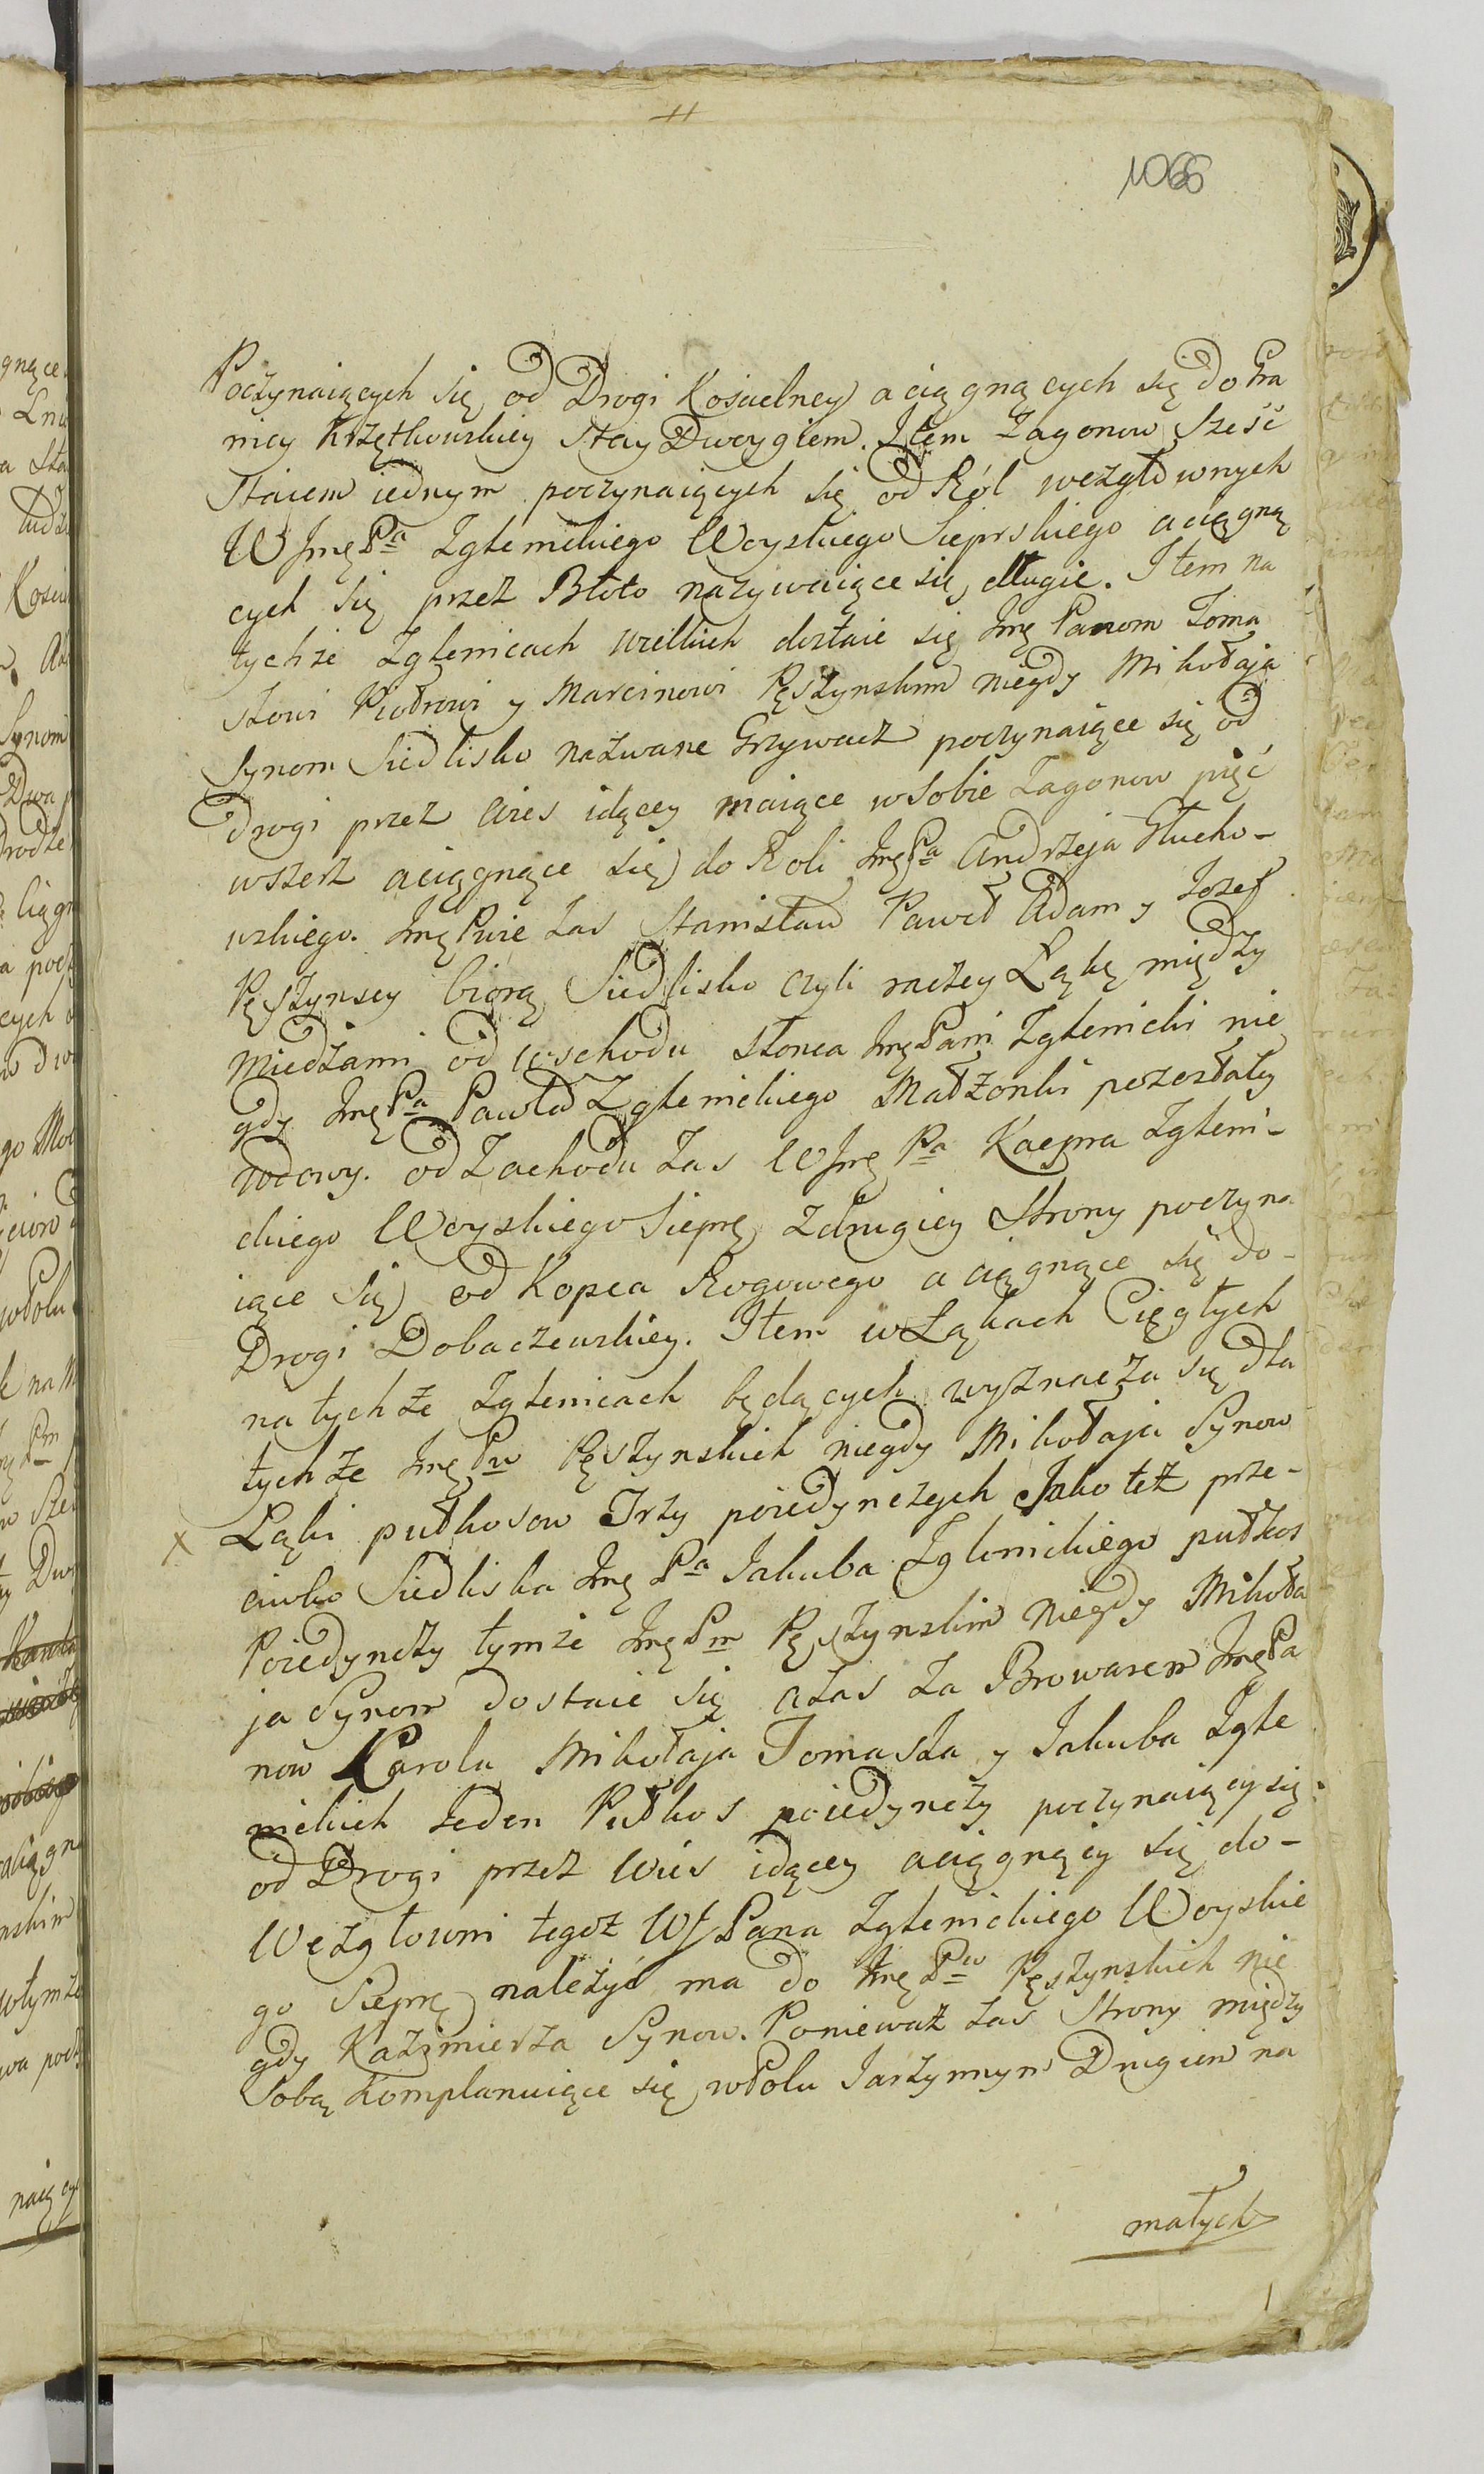 1066
Poczynaiących się od Drogi Koscielney a ciągnących się do Gra
nicy Krzętkowskiey Stay Dwoygiem. Item Zagonow Sześć
Staiem iednym poczynaiących się od Ról wezgłownych
W Jmę Pa Zglenickiego Woyskiego Sieprskiego a ciągną
cych się przez Błoto nazywaiące się długie. Item na
tychże Zglenicach wielkich dostaie się Jmę Panom Toma
szowi Piotrowi y Marcinowi Pęszynskim niegdy Mikołaja
Synom Siedlisko nazwane Grzywacz poczynaiące się od
Drogi przez Wies idącey maiące w sobie Zagonow pięć
wszerz a ciągnące się do Roli Jmę Pa Andrzeja Głucho-
wskiego. Jmę Pwie zas Stanisław Paweł Adam y Jozef
Pęszynscy biorą Siedlisko czyli raczey Łąkę między
miedzami od wschodu słonca Jmę Pani Zglenicki nie
gdy Jmę Pa Pawła Zglenickiego Małżonki pozostałey
wdowy. od Zachodu zas W Jmę Pa Kacpra Zgleni-
ckiego Woyskiego Sieprę z drugiey Strony poczyna
iące się od Kopca Rogowego a ciągnące się do-
Drogi Dobaczewskiey. Item w Łąkach Cięgłych
na tychże Zglenicach będących wyznacza się dla
tychże Jmę Pw Pęszynskich niegdy Mikołaja Synow
x Łąki pułkosow Trzy poiedynczych Jako też prze-
ciwko Siedliska Jmę Pa Jakuba Zglenickiego pułkos
Poiedynczy tymże Jmę Pm Pęszynskim niegdy Mikoła
ja Synom dostaie się a zas za Browarem Jmę Pa
now Karola Mikołaja Tomasza y Jakuba Zgle
nickich Jeden Pułkos poiedynczy poczynaiący się
od Drogi przez Wies idącey a ciągnący się do-
Wezgłowni tegoz WJ Pana Zglenickiego Woyskie
go Sieprę należyć ma do Jmę Pw Pęszynskich nie
gdy Kazimierza Synow. Ponieważ zas Strony między
Sobą Komplanuiące się w Polu Jarzynnym Drugiem na
małych